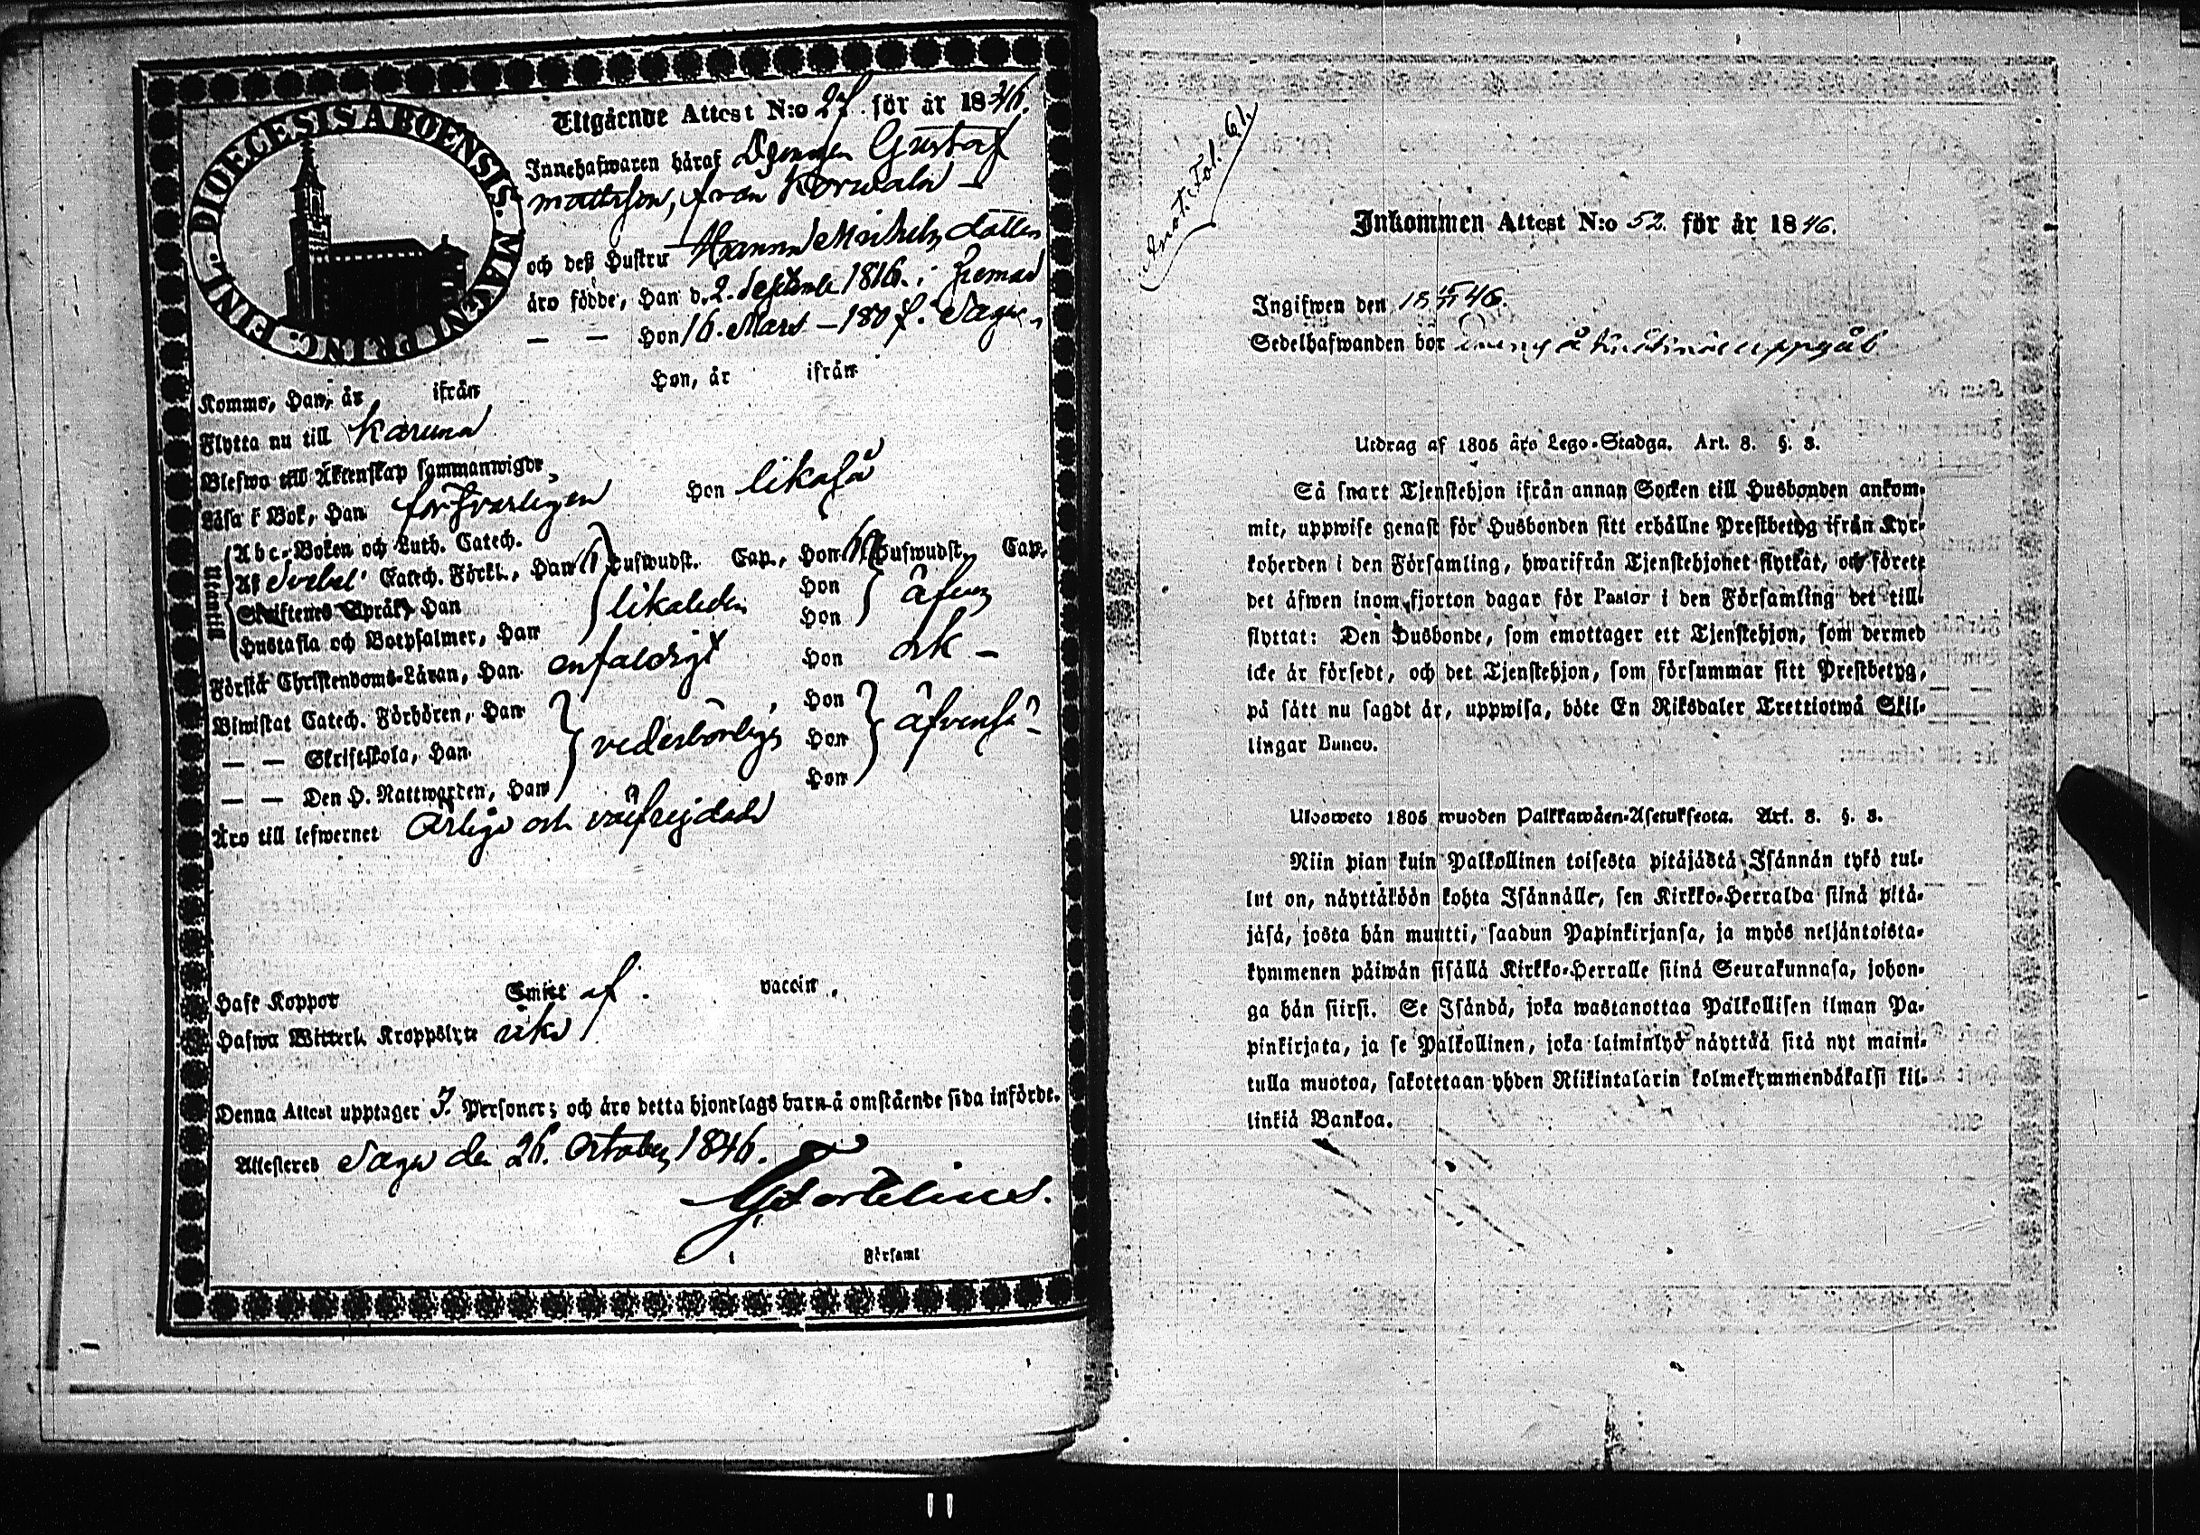 DIOECESIS ABOENSIS. MAGNI PRINC. FINL.
Utgående Attest N:o 27. för år 1846.
Innehafwaren häraf Drängen Gustaf
Mattsson, från Korwala
och deß Hustru Hanna Michelsdotter
äro födde, Han d. 2. Septembr 1816. i Kemas
— — Hon 16. Mars – 1807. i Sagu
Kommo, Han, år ifrån Hon, år ifrån
Flytta nu till Karuna
Blefwo till Äktenskap sammanwigde
Läsa i Bok, Han försvarligen Hon likaså
Utantill
Abc-Boken och Luth. Catech.
Af Svebel. Catech. Förkl., Han 6 Hufwudst. Cap., Hon 6 Hufwudst. Cap.
Skriftenes Språk, Han likaledes Hon äfven
Hustafla och Botpsalmer, Han Hon
Förstå Christendoms-Läran, Han enfaldigt Hon ok –
Biwistat Catech. Förhören, Han Hon
— — Skriftskola, Han vederbörligen Hon äfvenså
— — Den H. Nattwarden, Han Hon
Äro till lefwernet ärlige och välfrejdade
Haft Koppor Smitt af. vaccin.
Hafwa Witterl. Kroppslyte icke
Denna Attest upptager 3. Personer; och äro detta hjonelags barn å omstående sida införde.
Attesteres Sagu den 26. October 1846.
i Församl
Annot. Fol. 61.
Inkommen Attest N:o 52. för år 1846.
Ingifwen den 18 15/11 46.
Sedelhafwanden bör å uppgåb
Utdrag af 1805 års Lego-Stadga. Art. 8. §. 3.
Så snart Tjenstehjon ifrån annan Socken till Husbonden ankom-
mit, uppwise genast för Husbonden sitt erhållne Prestbetyg ifrån Kyr-
koherden i den Församling, hwarifrån Tjenstehjonet flyttat, och förete
det äfwen inom fjorton dagar för Pastor i den Församling det till-
flyttat: Den Husbonde, som emottager ett Tjenstehjon, som dermed
icke är försedt, och det Tjenstehjon, som försummar sitt Prestbetyg,
på sätt nu sagdt är, uppwisa, böte En Riksdaler Trettiotwå Skil-
lingar Banco.
Ulosweto 1805 wuoden Palkkawäen-Asetuksesta. Art. 8. §. 3.
Niin pian kuin Palkollinen toisesta pitäjästä Isännän tykö tul-
lut on, näyttäköön kohta Isännälle, sen Kirkko-Herralda siinä pitä-
jäsä, josta hän muutti, saadun Papinkirjansa, ja myös neljäntoista-
kymmenen päiwän sisällä Kirkko-Herralle siinä Seurakunnasa, johon-
ga hän siirsi. Se Isändä, joka wastanottaa Palkollisen ilman Pa-
pinkirjata, ja se Palkollinen, joka laiminlyö näyttää sitä nyt maini-
tulla muotoa, sakotetaan yhden Riikintalarin kolmekymmendäkaksi kil-
linkiä Bankoa.